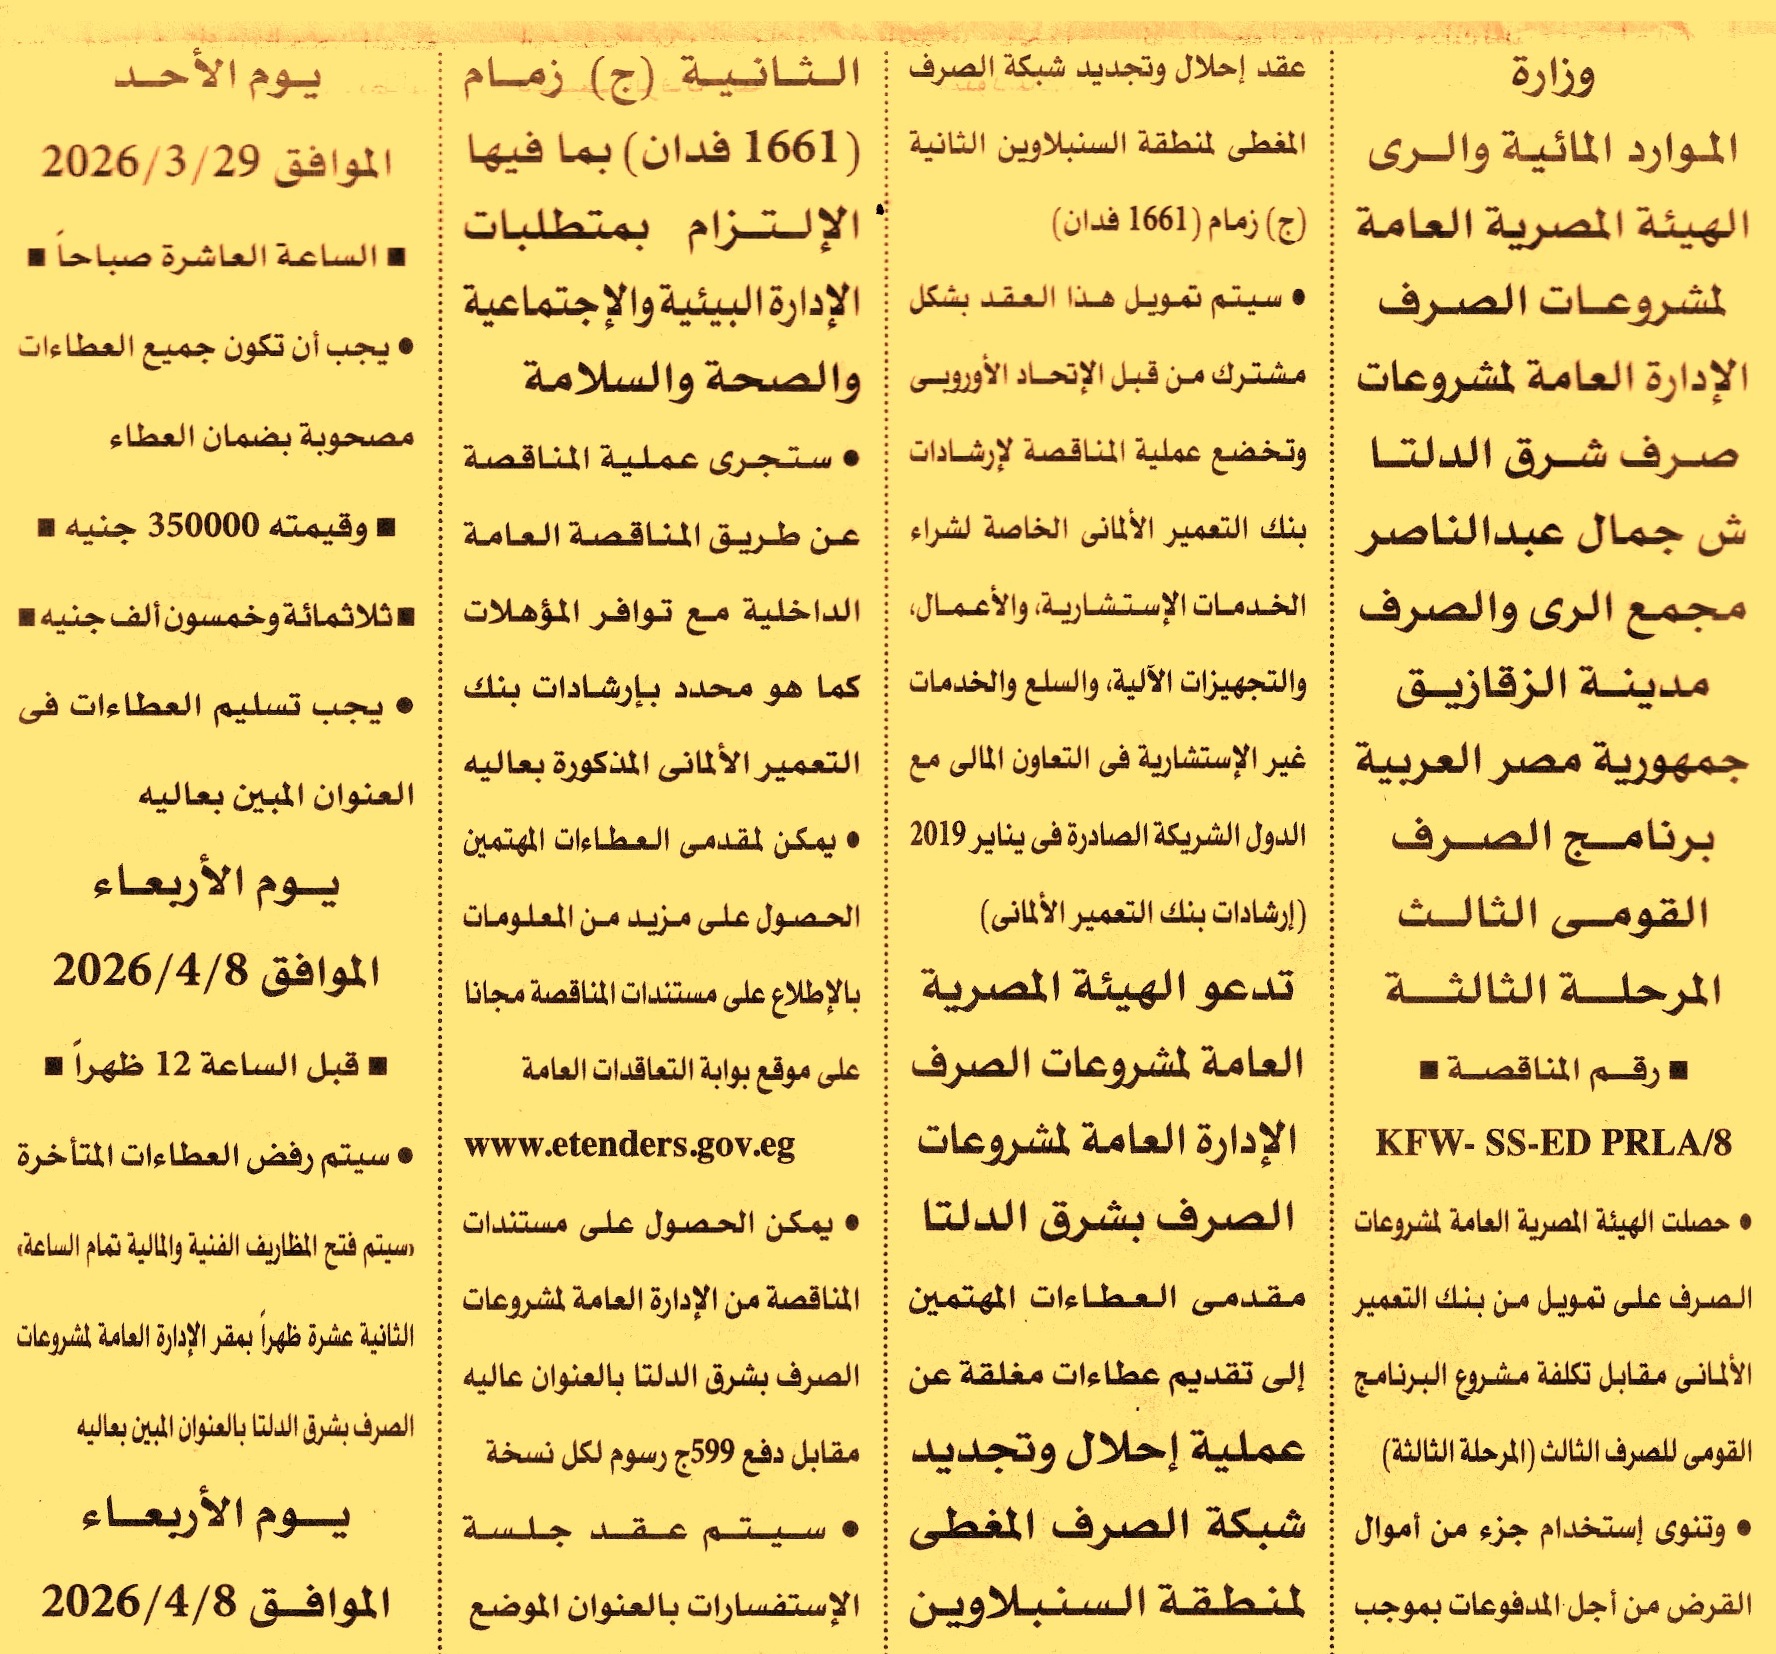 وزارة
الموارد المائية والرى
الهيئة المصرية العامة
لمشروعات الصرف
الإدارة العامة لمشروعات
صرف شرق الدلتا
ش جمال عبدالناصر
مجمع الرى والصرف
مدينة الزقازيق
جمهورية مصر العربية
برنامج الصرف
القومى الثالث
المرحلة الثالثة
■ رقم المناقصة ■
KFW- SS-ED PRLA/8
● حصلت الهيئة المصرية العامة لمشروعات
الصرف على تمويل من بنك التعمير
الألمانى مقابل تكلفة مشروع البرنامج
القومى للصرف الثالث (المرحلة الثالثة)
● وتنوى إستخدام جزء من أموال
القرض من أجل المدفوعات بموجب
عقد إحلال وتجديد شبكة الصرف
المغطى لمنطقة السنبلاوين الثانية
(ج) زمام (1661 فدان)
● سيتم تمويل هذا العقد بشكل
مشترك من قبل الإتحاد الأوروبى
وتخضع عملية المناقصة لإرشادات
بنك التعمير الألمانى الخاصة لشراء
الخدمات الإستشارية، والأعمال،
والتجهيزات الآلية، والسلع والخدمات
غير الإستشارية فى التعاون المالى مع
الدول الشريكة الصادرة فى يناير 2019
(إرشادات بنك التعمير الألمانى)
تدعو الهيئة المصرية
العامة لمشروعات الصرف
الإدارة العامة لمشروعات
الصرف بشرق الدلتا
مقدمى العطاءات المهتمين
إلى تقديم عطاءات مغلقة عن
عملية إحلال وتجديد
شبكة الصرف المغطى
لمنطقة السنبلاوين
الثانية (ج) زمام
(1661 فدان) بما فيها
الإلتزام بمتطلبات
الإدارة البيئية والإجتماعية
والصحة والسلامة
● ستجرى عملية المناقصة
عن طريق المناقصة العامة
الداخلية مع توافر المؤهلات
كما هو محدد بإرشادات بنك
التعمير الألمانى المذكورة بعاليه
● يمكن لمقدمى العطاءات المهتمين
الحصول على مزيد من المعلومات
بالإطلاع على مستندات المناقصة مجانا
على موقع بوابة التعاقدات العامة
www.etenders.gov.eg
● يمكن الحصول على مستندات
المناقصة من الإدارة العامة لمشروعات
الصرف بشرق الدلتا بالعنوان عاليه
مقابل دفع 599ج رسوم لكل نسخة
● سيتم عقد جلسة
الإستفسارات بالعنوان الموضع
يوم الأحد
الموافق 2026/3/29
■ الساعة العاشرة صباحاً ■
● يجب أن تكون جميع العطاءات
مصحوبة بضمان العطاء
■ وقيمته 350000 جنيه ■
■ ثلاثمائة وخمسون ألف جنيه ■
● يجب تسليم العطاءات فى
العنوان المبين بعاليه
يوم الأربعاء
الموافق 2026/4/8
■ قبل الساعة 12 ظهراً ■
● سيتم رفض العطاءات المتأخرة
«سيتم فتح المظاريف الفنية والمالية تمام الساعة»
الثانية عشرة ظهراً بمقر الإدارة العامة لمشروعات
الصرف بشرق الدلتا بالعنوان المبين بعاليه
يوم الأربعاء
الموافق 2026/4/8